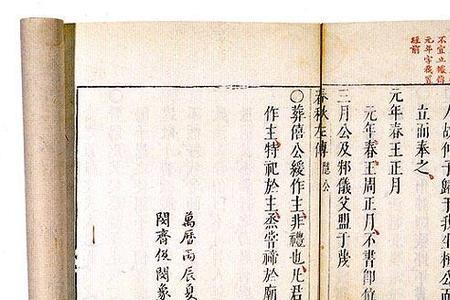 不宜立據傳
元年字裁置
經前
故仲子歸于我生桓公而
立而奉之
元年春王正月
元年春王周正月不書即
三月公及邾儀父盟于蔑
春秋左傳 隱公
○葬僖公緩作主非禮也凡君
作主特祀於主烝嘗禘於廟
萬曆丙辰夏
閔齊伋閔象